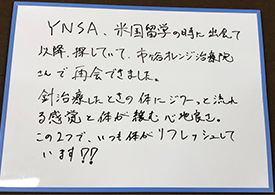 YNSA、米国留学の時に出会て
以降、探していて、市ヶ谷オレンジ治療院
さんで再会できました。
針治療したときの体にジワーっと流れ
る感覚と体が緩む心地良さ。
この2つで、いつも体がリフレッシュして
います!!